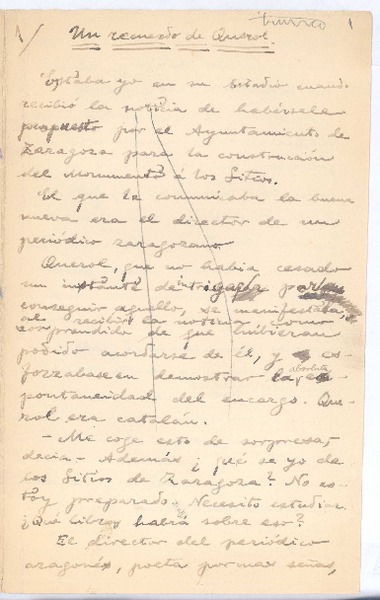 1
Un recuerdo de Querol
Estaba yo en su Estudio cuando
recibió la noticia de habérsele
propuesto por el Ayuntamiento de
Zaragoza para la construcción
del Monumento á los Sitios.
El que le comunicaba la buena
nueva era el director de un
periódico zaragozano
Querol, que no había cesado
un instante de intrigar para
conseguir aquello, se manifestaba,
al recibir la noticia como
sorprendido de que hubieran
podido acordarse de él, y es-
forzabase en demostrar la absoluta es-
pontaneidad del encargo. Que-
rol era catalán.
- Me coge esto de sorpresa, -
decia - Además ¿qué se yo de
los Sitios de Zaragoza? No es-
toy preparado. Necesito estudiar.
¿Que libros habrá sobre eso?
El director del periódico
aragonés, poeta por mas señas,